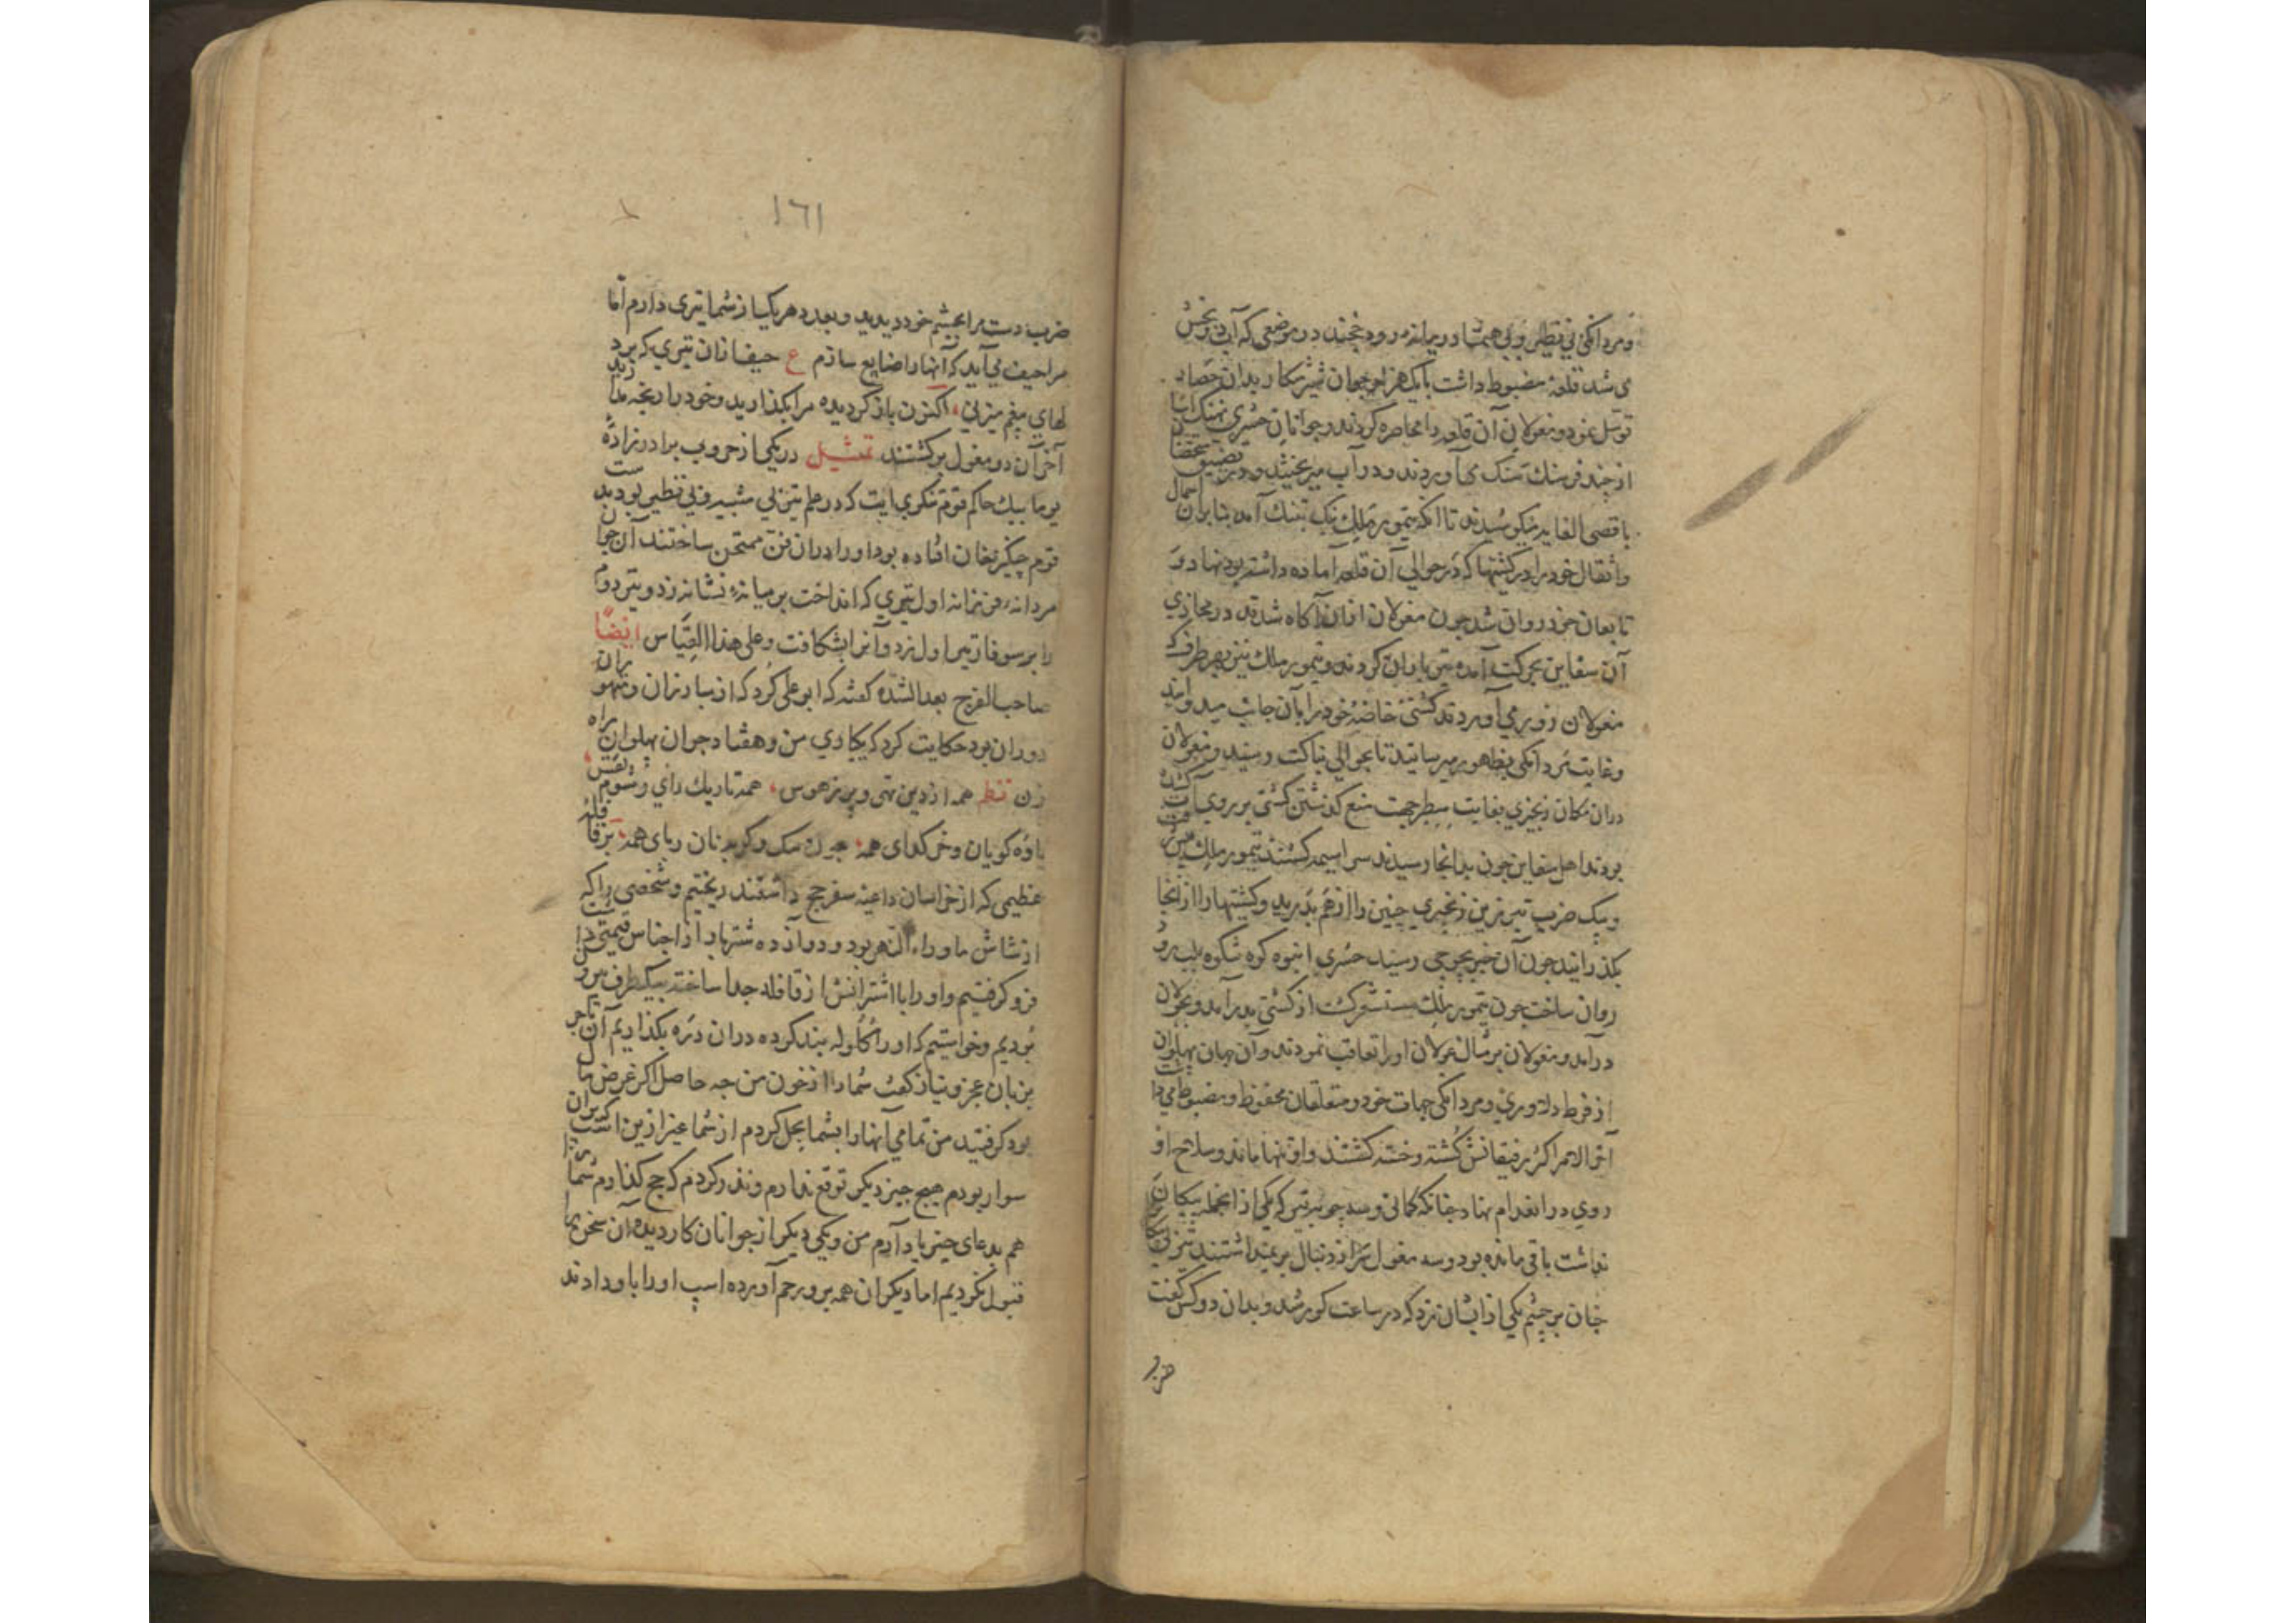 ومردانکی بی نظیر وبی همتا در میانه رود خجند در موضعی که آب دو بخش
می شد قلعه مضبوط داشت با یک هزار جوان شمشیر کار بدان حصار
توسل نمود ومغولان آن قلعه را محاصره کردند وجوانان حشری سنک
از چند فرسنک سنک می آوردند ودر آب میریختند ودر تضییق
باقصی الغایه میکوشیدند تا انکه تیمور ملک تنک آمد بنابران احمال
واثقال خود را در کشتیها که در حوالی آن قلعه آماده داشته بود نهاد و
تابعان خود روان شد چون مغولان از آن آکاه شدند در محاذی
آن سفاین بحرکت آمده تیر باران کردند وتیمور ملک نیز بهر طرف که
مغولان زور می آوردند کشتی خاصه خود را بآن جانب میدوانید
وغایت مردانکی بظهور میرسانید تا بحوالی بناکت رسید ومغولان
دران مکان زنجیری بغایت سطبر جهت منع کذشتن کشتی بر روی آب کشیده
بودند اهل سفاین چون بدانجا رسیدند سراسیمه کشتند تیمور ملک
وبیک ضرب تبرزین زنجیری چنین را از هم بدرید وکشتیها را از انجا
بکذرانید چون آن خبر بجوجی رسید حشری انبوه کوه شکوه بلب رود
روان ساخت چون تیمور ملک مستشعر کشت از کشتی بدر آمد وبخولان
در آمد ومغولان بر سان غولان او را تعاقب نمودند وآن جهان پهلوان
از فرط دلاوری ومردانکی جهات خود ومتعلقان محفوظ ومضبوط می داشت
آخر الامر اکثر رفیقانش کشته وخسته کشتند واو تنها ماند وسلاح او
روی در انعدام نهاد چنانکه کمانی وسه چوبه تیر که یکی از انجمله پیکان
نداشت باقی مانده بود وسه مغول از دنبال بر نمیداشتند تیر بی پیکان
چنان بر چشم یکی از ایشان زد که در ساعت کور شد وبدان دو کس کفت
ضرب
۱٦۱
ضرب دست مرا بچشم خود دیدید وبعدد هر یک از شما تیری دارم اما
مرا حیف می آید که آنها را ضایع سازم ع حیف ازان تیری که بر
اکنون باز کردیده مرا بکذارید وخود را رنجه مدارید
آخر آن دو مغول بر کشتند تمثیل در یکی از حروب برادر زاده
بیک حاکم قوم مکریت که در علم تیر بی شبیه وبی نظیر بود بدست
قوم چنکیز خان افتاده بود او را دران فن ممتحن ساختند آن جوان
مردانه فرزانه اول تیری که انداخت بر میانه نشانه زد وتیر دوم
را بر سوفار تیر اول زد وآنرا بشکافت وعلی هذا القیاس ایضا
صاحب الفرج بعد الشده کفته که ابو علی کرد که از مبارزان ومتهوران
دوران بود حکایت کرد که یکباری من وهفتاد جوان پهلوان راه
زن نظم همه از دین تهی وپر ز هوس، همه تاریک رای وشوم نفس
یاوه کویان وخر کدای همه، چون سک وکربه نان ربای همه، بر قافله
عظیمی که از خراسان داعیه سفر حج داشتند ریختیم وشخصی را که
از شاش ماوراء النهر بود ودوازده شتر بار از اجناس قیمتی داشت
فرو کرفتیم واو را با اشترانش از قافله جدا ساخته بیکطرف بیرون
بودیم وخواستیم که او را کلوله بند کرده دران دره بکذاریم آن تاجر
بزبان عجز ونیاز کفت شما را از خون من چه حاصل اکر غرض مال
بود کرفتید من تمامی آنها را بشما بحل کردم از شما غیر ازین اسب که بران
سوار بودم هیچ چیز دیکر توقع ندارم ونذر کردم که حج کذارم شما
هم بدعای خیر یاد آرم من ویکی دیکر از جوانان کار دیده آن سخن را
قبول نکردیم اما دیکران همه برو رحم آورده اسپ او را باو دادند